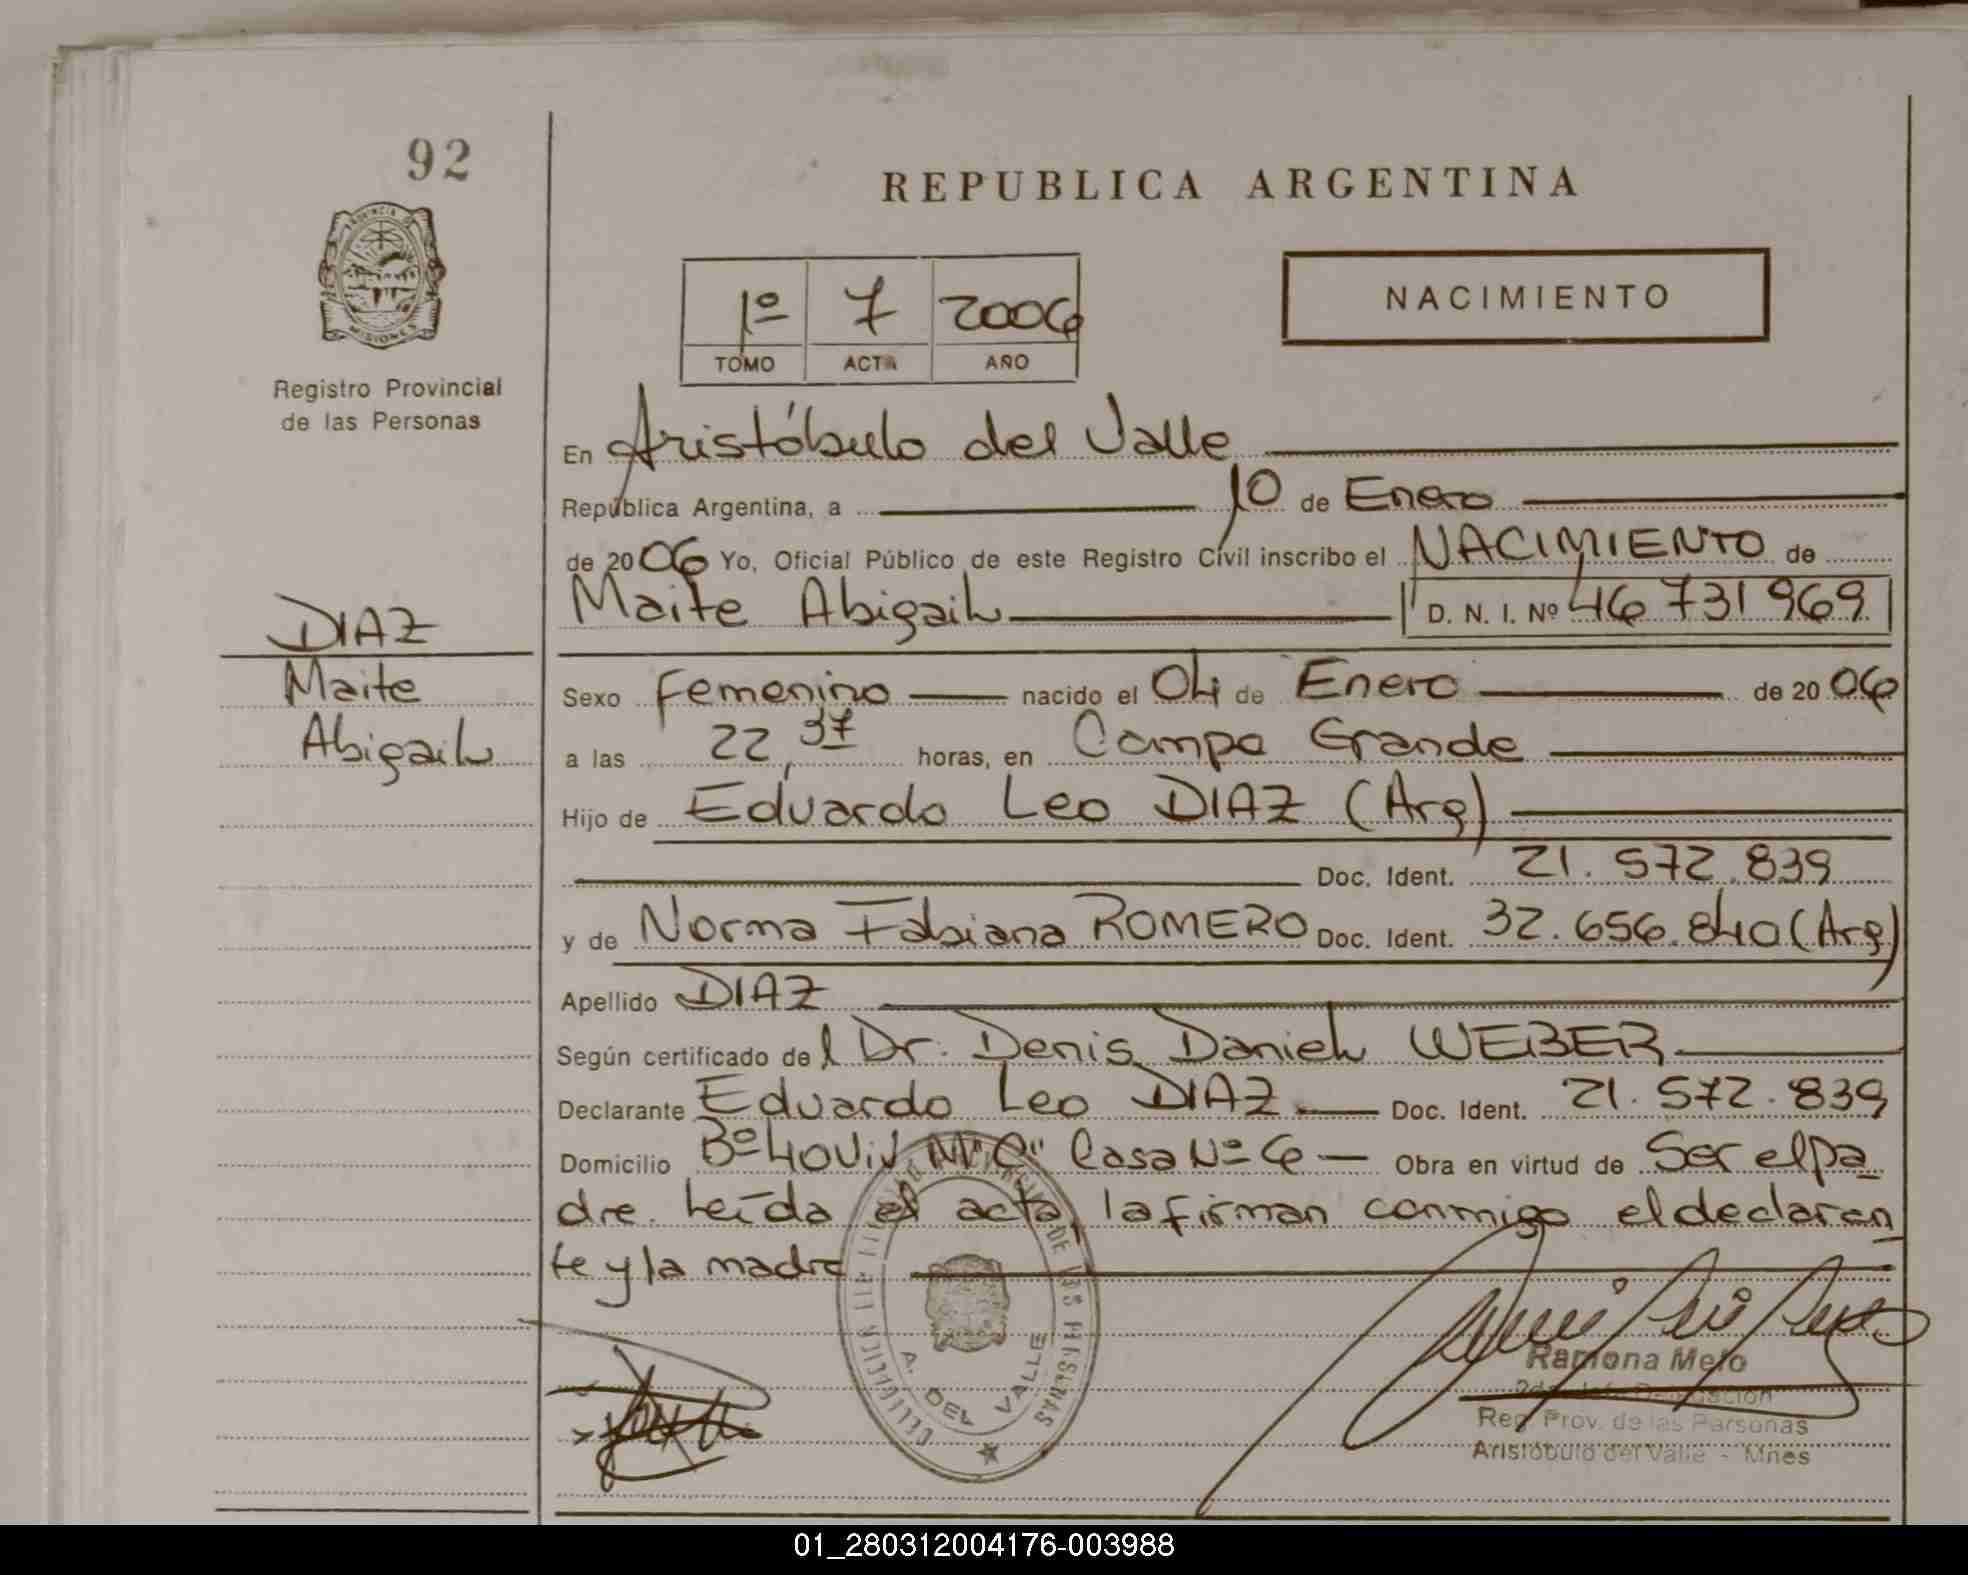 92
REPUBLICA ARGENTINA
PROVINCIA DE
MISIONES
Registro Provincial
de las Personas
1º 7 2006
TOMO ACTA AÑO
NACIMIENTO
En Aristóbulo del Valle
República Argentina, a 10 de Enero
de 2006 Yo, Oficial Público de este Registro Civil inscribo el NACIMIENTO de
Maite Abigail D. N. I. Nº 46 731 969
DIAZ
Maite
Abigail
Sexo Femenino nacido el 04 de Enero de 2006
a las 22,37 horas, en Campo Grande
Hijo de Eduardo Leo DIAZ (Arg)
Doc. Ident. 21.572.839
y de Norma Fabiana ROMERO Doc. Ident. 32.656.840 (Arg)
Apellido DIAZ
Según certificado del Dr. Denis Daniel WEBER
Declarante Eduardo Leo DIAZ Doc. Ident. 21.572.839
Domicilio Bº 40 Viv Casa Nº 6 Obra en virtud de Ser el pa
dre. Leída el acta, la firman conmigo el declaran
te y la madre
DE LAS PERSONAS
A. DEL VALLE
Ramona Melo
Delegación
Reg. Prov. de las Personas
Aristóbulo del Valle - Mnes
01_280312004176-003988